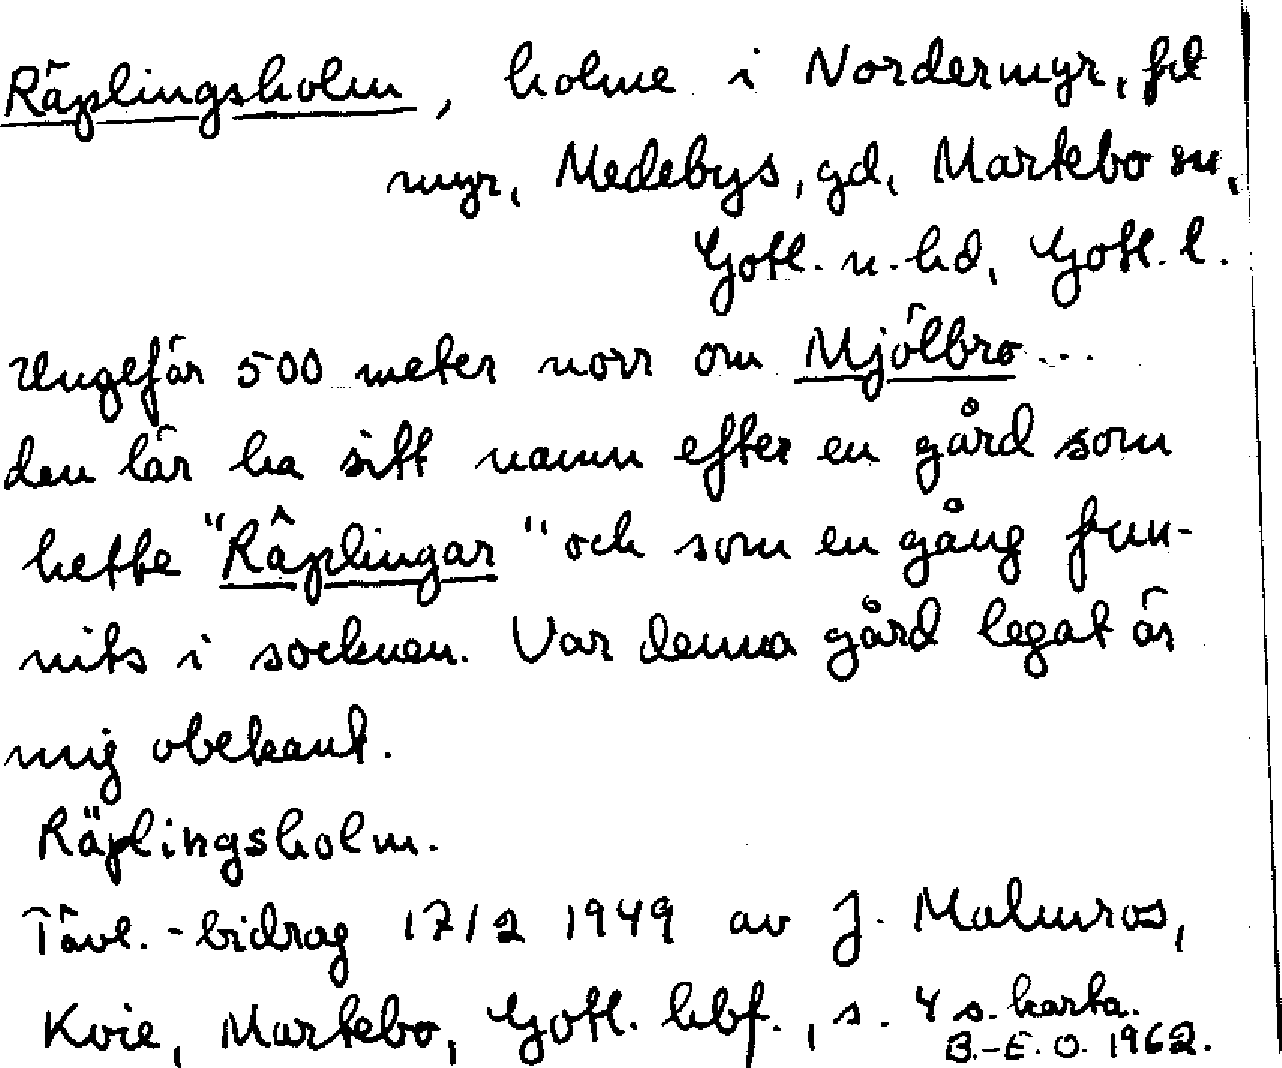 Räplingsholm, holme i Nordermyr, fd
myr, Medebys, gd, Martebo sn,
Gotl. n. hd, Gotl. l.
Ungefär 500 meter norr om Mjölbro...
den lär ha sitt namn efter en gård som
hette "Räplingar" och som en gång fun-
nits i socknen. Var denna gård legat är
mig obekant.
Räplingsholm.
Tävl.-bidrag 17/2 1949 av J. Malmros,
Kvie, Martebo, Gotl. hbf., s. 4 s. karta.
B.-E. O. 1962.